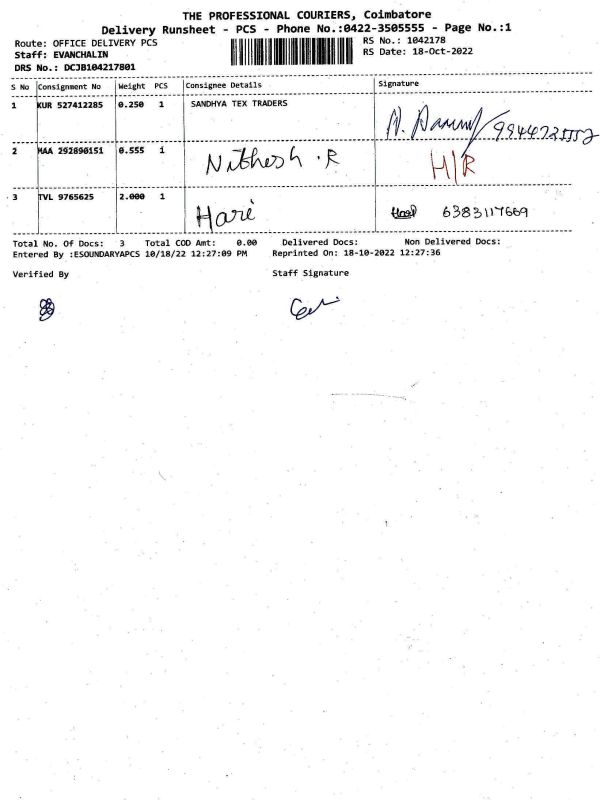 THE PROFESSIONAL COURIERS, Coimbatore
Delivery Runsheet - PCS - Phone No.:0422-3505555 - Page No.:1
Route: OFFICE DELIVERY PCS RS No.: 1042178
Staff: EVANCHALIN RS Date: 18-Oct-2022
DRS No.: DCJB104217801
S No Consignment No Weight PCS Consignee Details Signature
1 KUR 527412285 0.250 1 SANDHYA TEX TRADERS
9944725552
2 MAA 292890151 0.555 1 Nithesh .R H/R
3 TVL 9765625 2.000 1 Hari 6383117669
Total No. Of Docs: 3 Total COD Amt: 0.00 Delivered Docs: Non Delivered Docs:
Entered By :ESOUNDARYAPCS 10/18/22 12:27:09 PM Reprinted On: 18-10-2022 12:27:36
Verified By Staff Signature